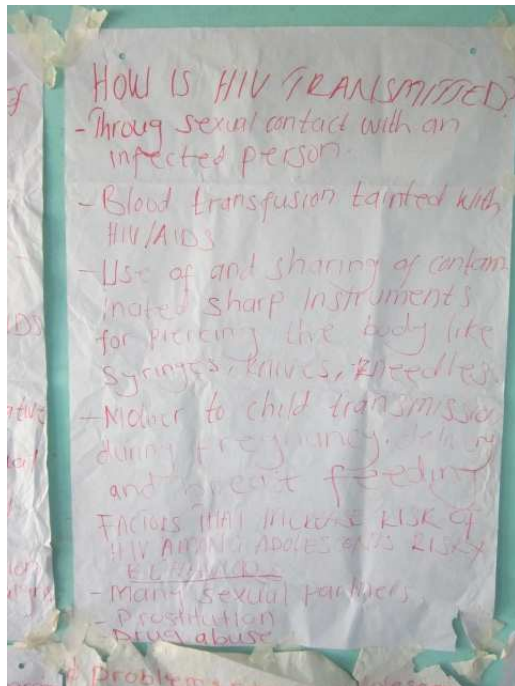 HOW IS HIV TRANSMITTED?
- Throug sexual contact with an
infected person.
- Blood transfusion tainted with
HIV/AIDS
- Use of and sharing of contam
inated sharp instruments
for piercing the body like
syringes, knives, needles
- Mother to child transmission
during pregnancy, delivery
and breast feeding
FACTORS THAT INCREASE RISK OF
HIV AMONG ADOLESCENTS RISKY
BEHAVIOURS
- Many sexual partners
- Prostitution
Drug abuse